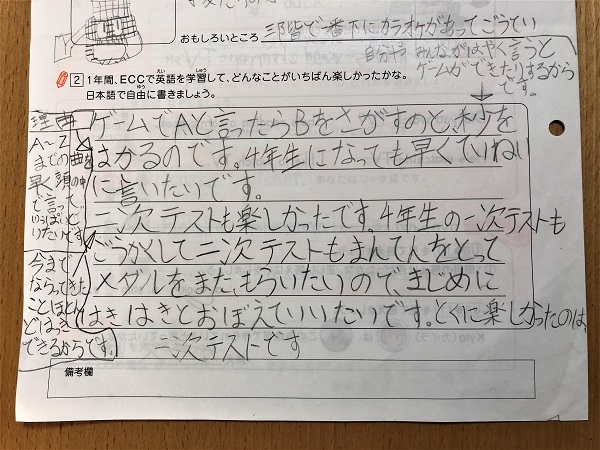 おもしろいところ 三階で一番下にカラオケがあってごうてい
2 1年間、ECCで英語を学習して、どんなことがいちばん楽しかったかな。
日本語で自由に書きましょう。
自分や みんながはやく言うと
ゲームができたりするから
です。
ゲームでAと言ったらBをさがすのと、秒を
はかるのです。4年生になっても早くていねい
に言いたいです。
二次テストも楽しかったです。4年生の一次テストも
ごうかくして二次テストもまんてんをとって
メダルをまたもらいたいので、まじめに
はきはきとおぼえていいたいです。とくに楽しかったのは、
二次テストです
理由
A〜Z
までの曲を
早く頭の中
で言って
いっぱいと
りたいです
今まで
ならってきた
ことほとん
どはっき
できるからです。
備考欄